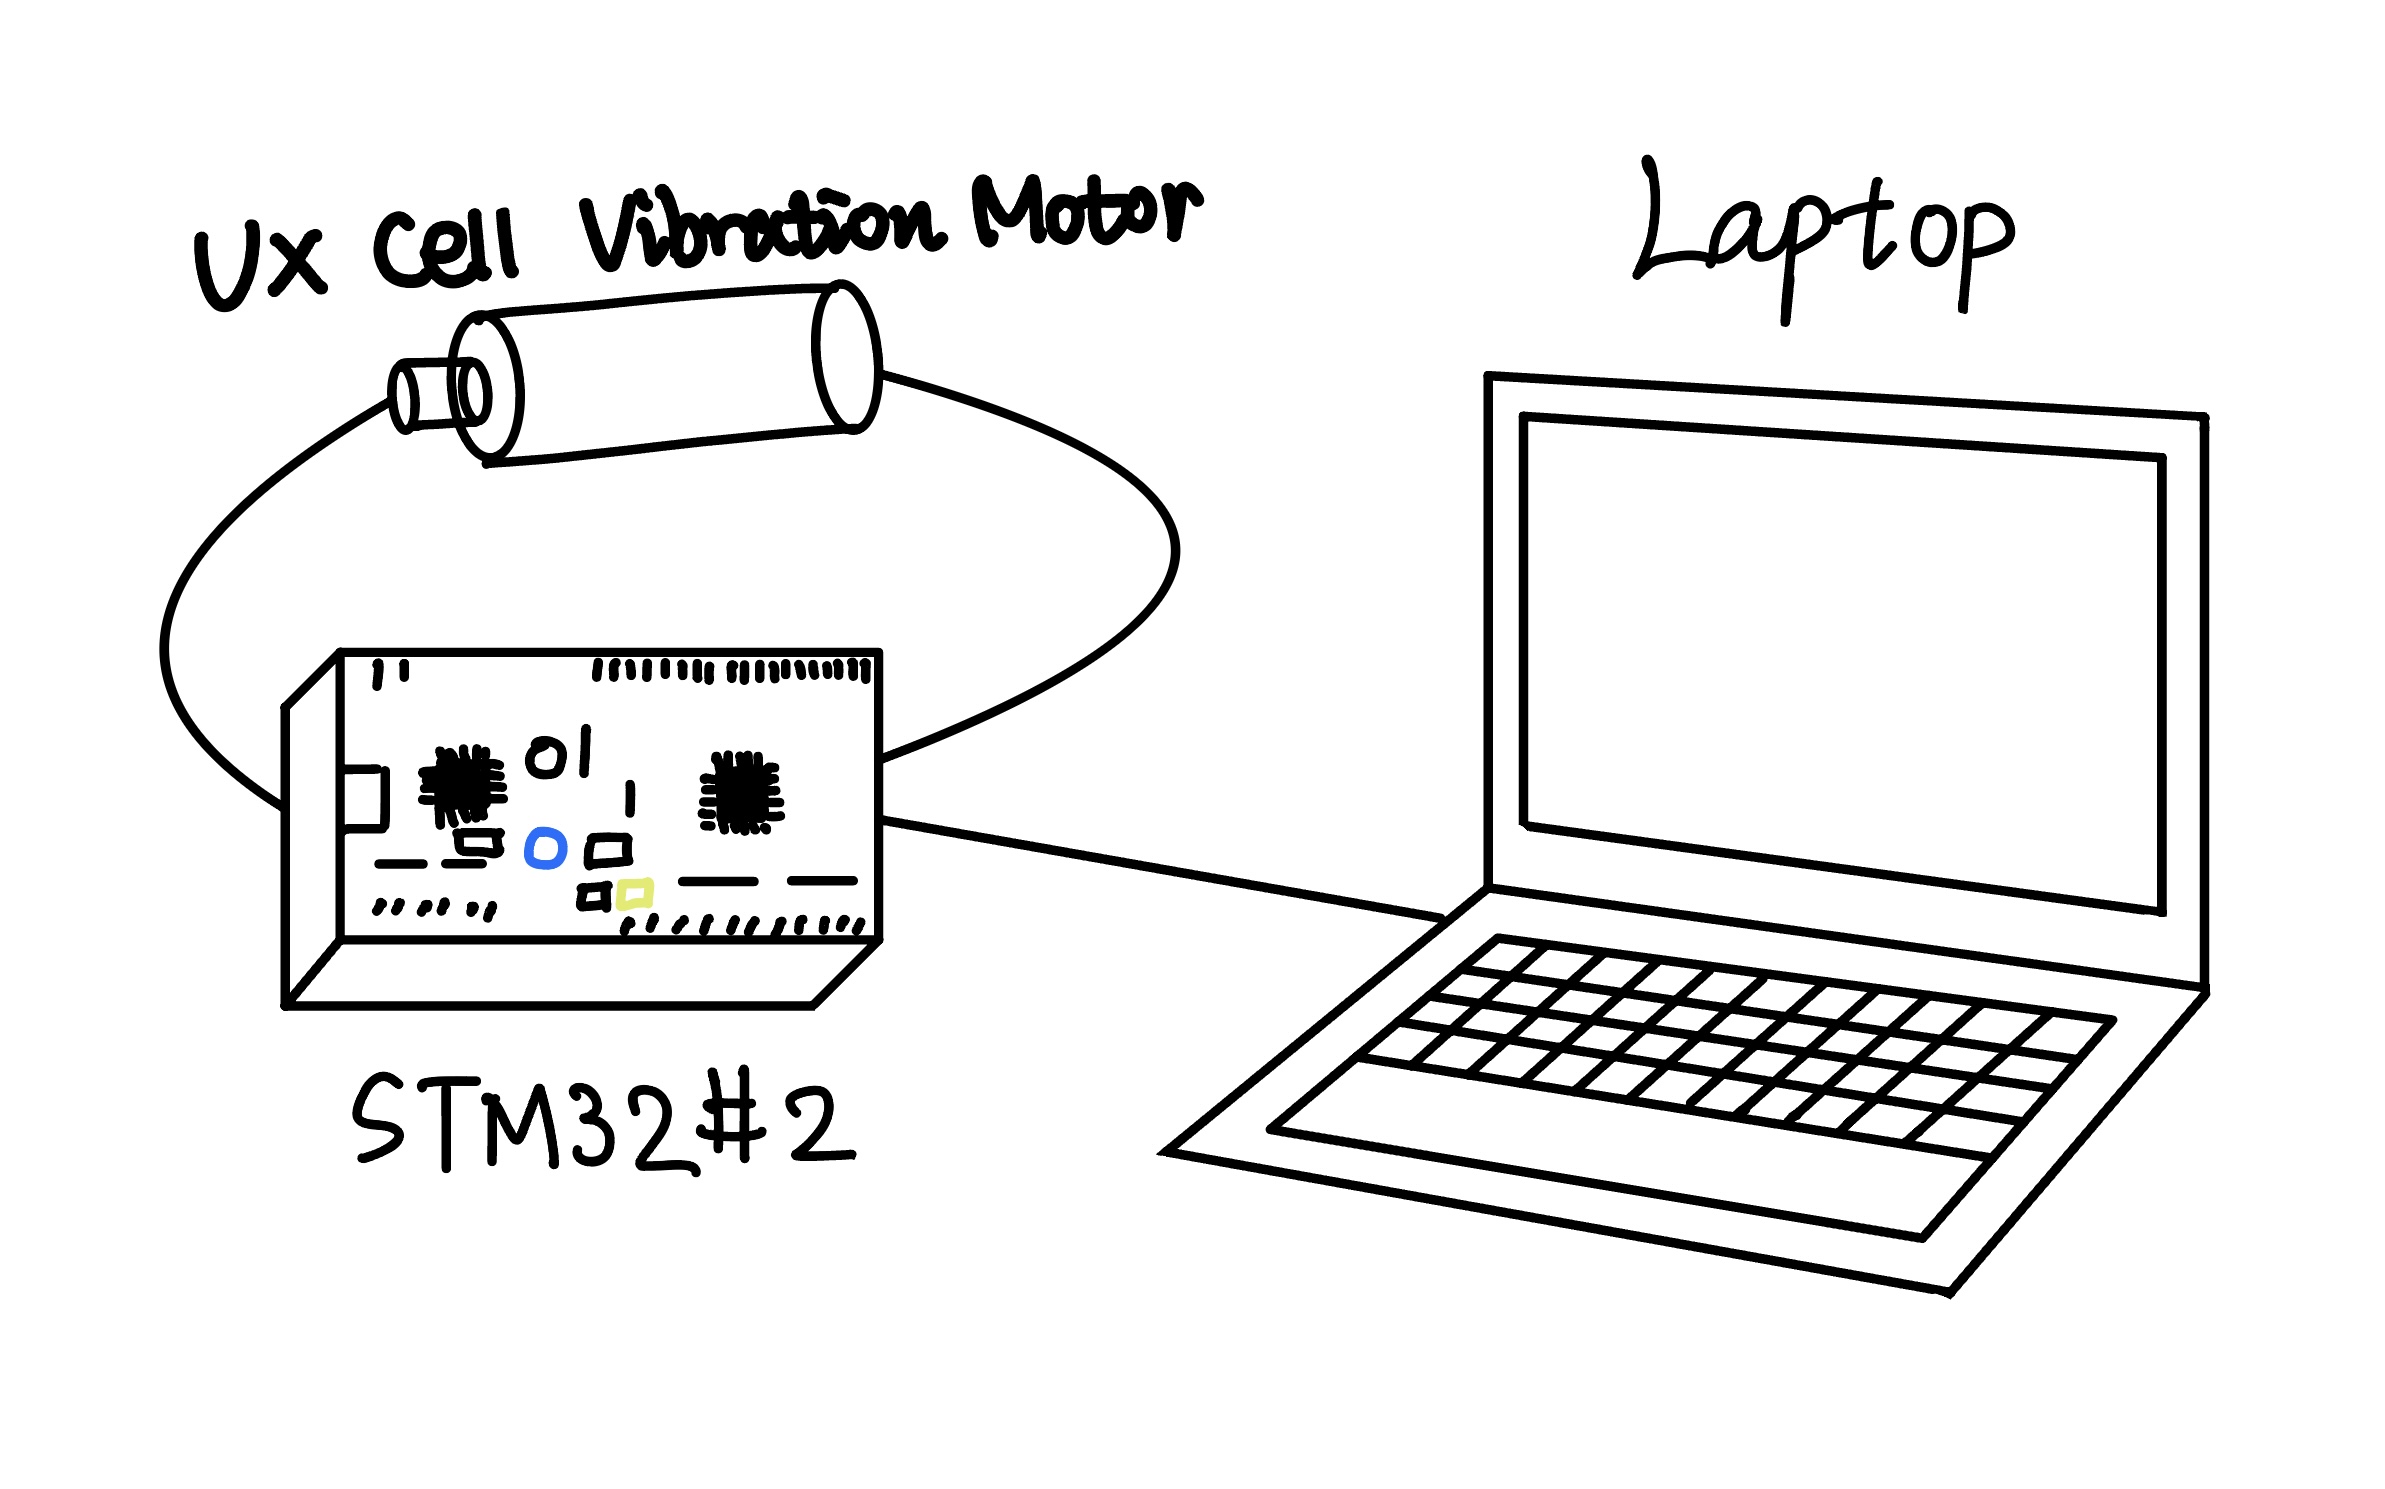 Ux Cell Vibration Motor
Laptop
STM32#2